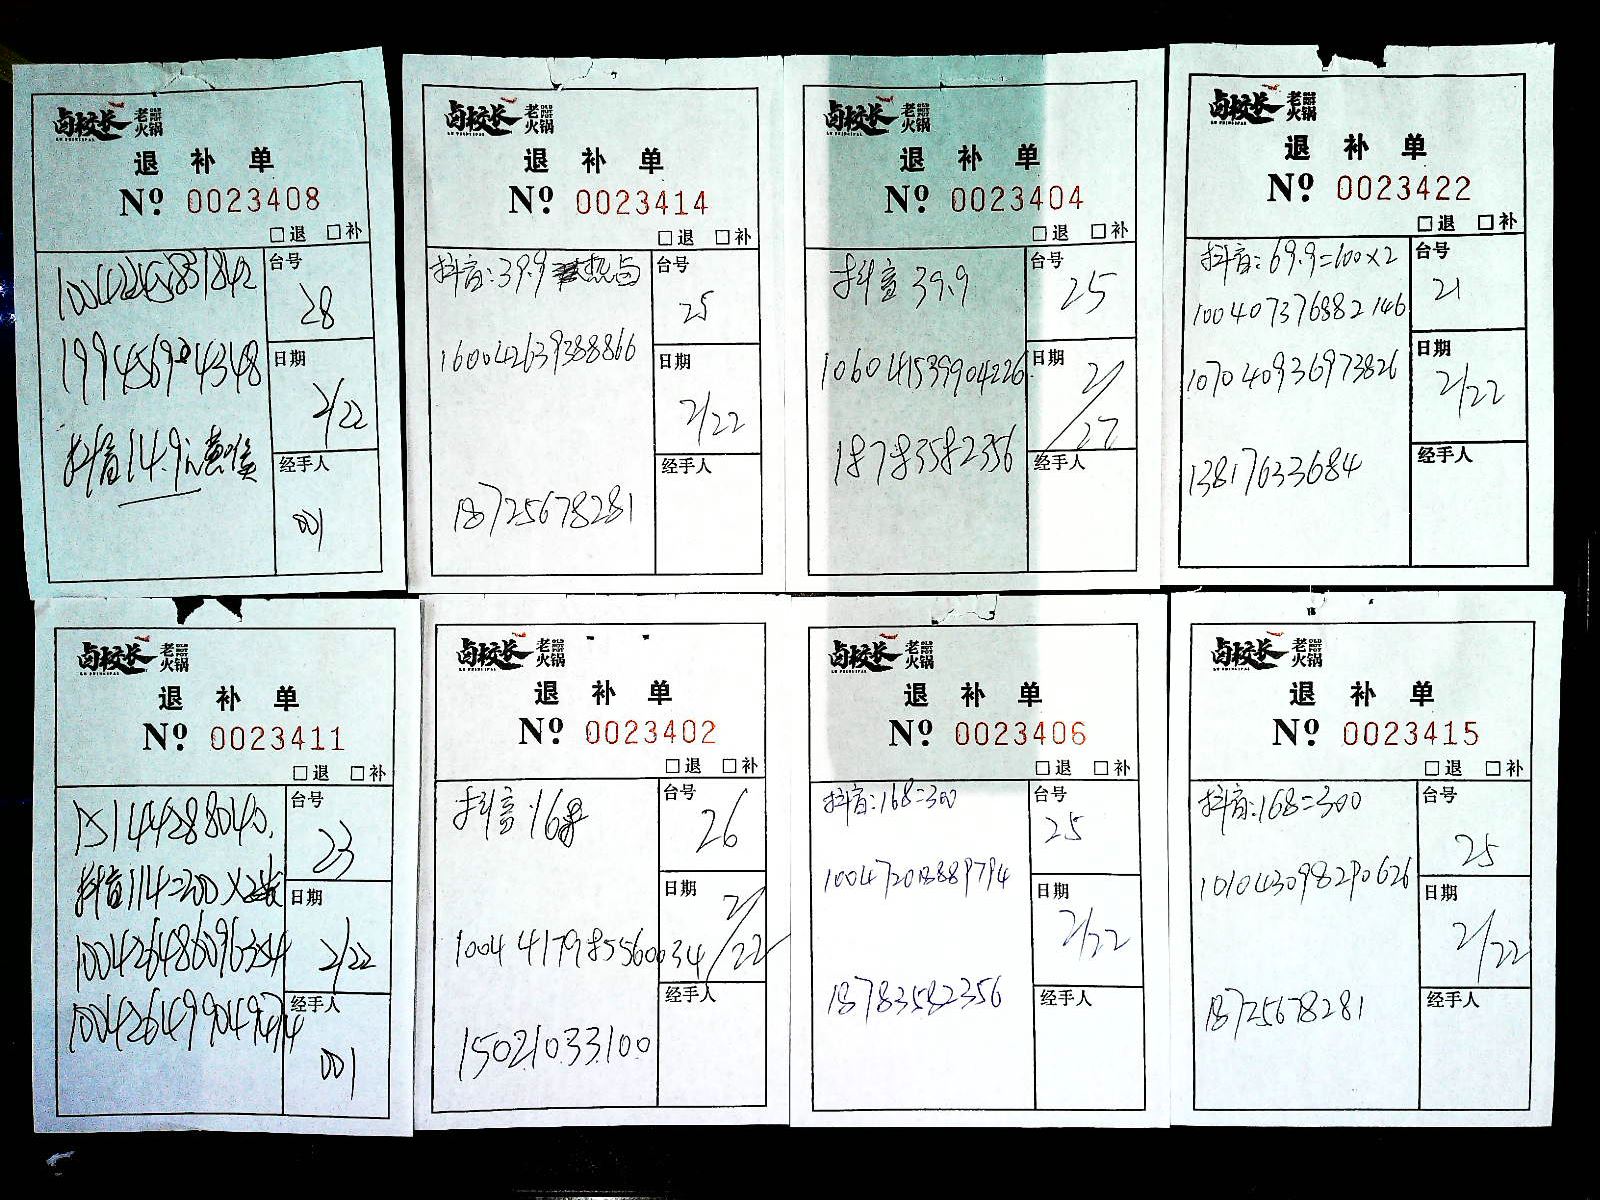 卤校长 老火锅
退补单
No 0023408
□退 □补
台号
28
19945694348
日期
2/22
抖音14.9元
经手人
001
卤校长 老火锅
退补单
No 0023414
□退 □补
抖音:39.9
台号
25
160042639388866
日期
2/22
经手人
18725678281
卤校长 老火锅
退补单
No 0023404
□退 □补
抖音 39.9
台号
25
106041539904226
日期
2/22
18783582356
经手人
卤校长 老火锅
退补单
No 0023422
□退 □补
抖音:69.9=100×2
台号
21
100407376882146
107040936973826
日期
2/22
13817633684
经手人
卤校长 老火锅
退补单
No 0023411
□退 □补
15144288040.
台号
23
抖音114=200×2
日期
2/22
经手人
001
卤校长 老火锅
退补单
No 0023402
□退 □补
抖音:168
台号
26
日期
2/22
1004417985560034
经手人
15021033100
卤校长 老火锅
退补单
No 0023406
□退 □补
抖音:168=300
台号
25
日期
2/22
18783582356
经手人
卤校长 老火锅
退补单
No 0023415
□退 □补
抖音:168=300
台号
25
101043098290626
日期
2/22
18725678281
经手人